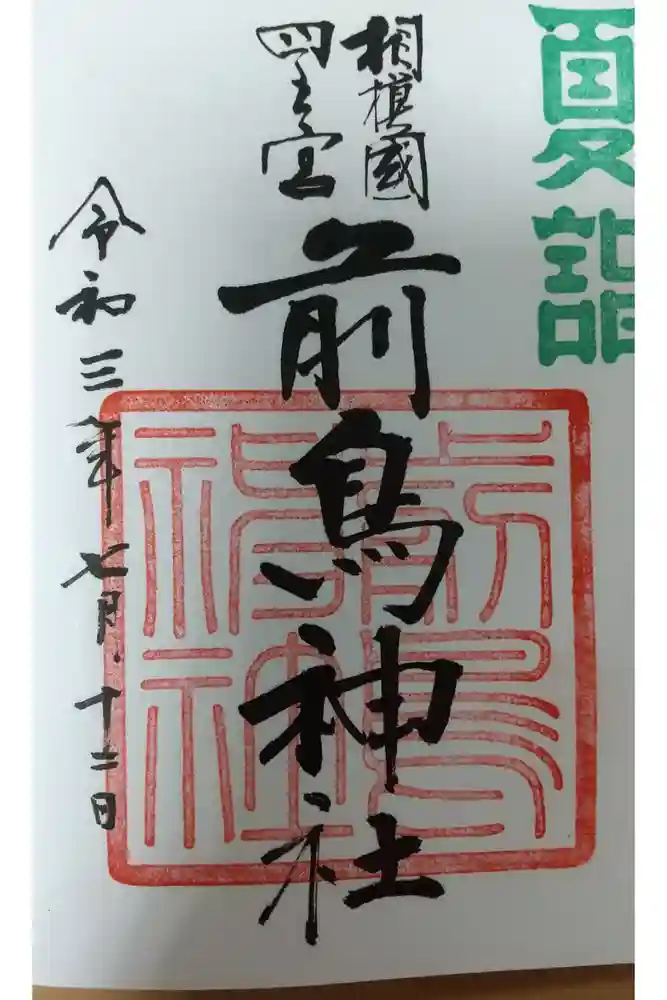 夏詣
相模國
四之宮
前鳥神社
令和三年七月十二日